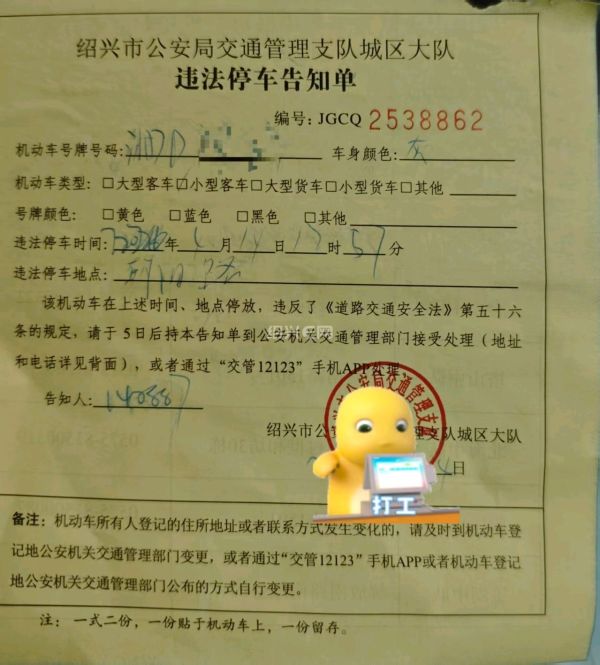 绍兴市公安局交通管理支队城区大队
违法停车告知单
编号: JGCQ 2538862
机动车号牌号码: 车身颜色: 灰
机动车类型: □大型客车□小型客车□大型货车□小型货车□其他
号牌颜色: □黄色 □蓝色 □黑色 □其他
违法停车时间: 年 月 日 时 57 分
违法停车地点:
该机动车在上述时间、地点停放，违反了《道路交通安全法》第五十六
条的规定，请于 5日后持本告知单到公安机关交通管理部门接受处理（地址
和电话详见背面），或者通过“交管12123”手机APP处理。
告知人:
绍兴市公 支队城区大队
日
公安局交通管理支队
打工
备注: 机动车所有人登记的住所地址或者联系方式发生变化的，请及时到机动车登
记地公安机关交通管理部门变更，或者通过“交管12123”手机APP或者机动车登记
地公安机关交通管理部门公布的方式自行变更。
注: 一式二份，一份贴于机动车上，一份留存。